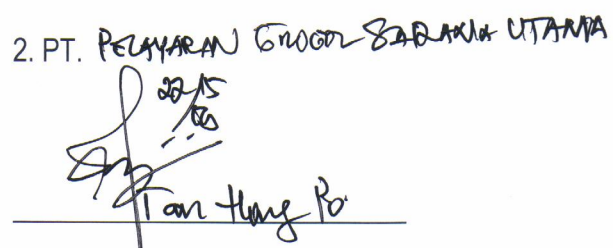 2. PT. PELAYARAN GROGOL SARANA UTAMA
22/15
Tan Hong Po